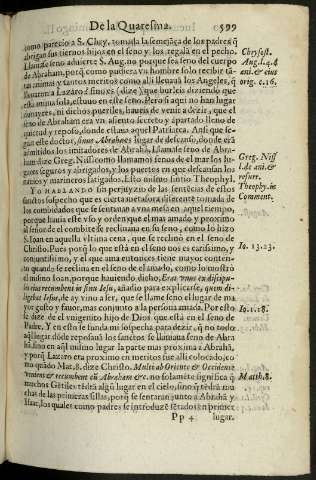 De la Quaresma.
599
como parecio a S. Chry. tomada la semejãça de los padres q̃
abrigan sus tiernos hijos en el seno y los regalã en el pecho.
Llamase seno aduierte S. Aug. no porque sea seno del cuerpo
de Abraham, porq̃ como pudiera vn hombre solo recibir tã-
tas animas y tantos meritos como alli lleuará los Angeles, q̃
lleuaron a Lazaro? sino es (dize) que burleis diziendo que
esta anima sola, estuuo en este seno. Pero si aqui no han lugar
donayres, ni dichos pueriles, haueis de venir a dezir, que el
seno de Abraham era vn assiento secreto y apartado lleno de
quietud y reposo, donde estaua aquel Patriarca. Ansi que se-
gun este doctor, sinus Abrahæ es lugar de descanso, donde erã
admitidos los imitadores de Abrahã. Llamase seno de Abra-
ham dize Greg. Niss. como llamamos senos de el mar los lu-
gares seguros y abrigados, y los puertos en que descansan los
nauios y marineros fatigados. Esto mismo sintio Theophil.
Yo HABLANDO sin perjuyzio de las sentēcias de estos
sanctos sospecho que es cierta metafora diferente tomada de
los combidados que se sentauan a vna mesa en aquel tiempo,
porque hauia este vso y orden que el mas amado y proximo
al señor de el combite se reclinaua en su seno, como lo hizo
S. Ioan en aquella vltima cena, que se reclinó en el seno de
Christo. Pues porq̃ lo que está en el seno nos es carissimo, y
conjuntissimo, y el que ama entonces tiene mayor conten-
to quando se reclina en el seno de el amado, como lo mostró
el mismo Ioan, porque hauiendo dicho, Erat vnus ex discipu-
lis eius recumbens in sinu Iesu, añadio para explicarse, quem di-
ligebat Iesus, de ay vino a ser, que se llame seno el lugar de ma
yor gusto y fauor, mas conjunto a la persona amada. Por esto
se dize de el vnigenito hijo de Dios que está en el seno de
Padre. Y en esto se funda mi sospecha para dezir, q̃ no todo
aq̃l lugar dõde reposauã los sanctos se llamaua seno de Abra
hã, sino en aq̃l mismo lugar la parte mas proxima a Abrahã,
y porq̃ Lazaro era proximo en meritos fue alli colocado, co-
mo quãdo Mat. 8. dize Christo. Multi ab Oriente & Occidente
venient & recumbent cũ Abraham &c. no solamẽte significa q̃
muchos Gẽtiles tẽdrã algũ lugar en el cielo, sino q̃ tẽdrã mu-
chas de las primeras sillas, porq̃ se sentaran junto a Abrahã y
Isaac, los quales como padres se introduzẽ sẽtados en primer
Pp 4 lugar.
Chrysost.
Aug. l. 4. d
ani. & eius
orig. c. 16.
Greg. Niss
l. de ani. &
resurr.
Theophy. in
Comment.
Io. 13. 23.
Io. 1. 18.
Matth. 8.